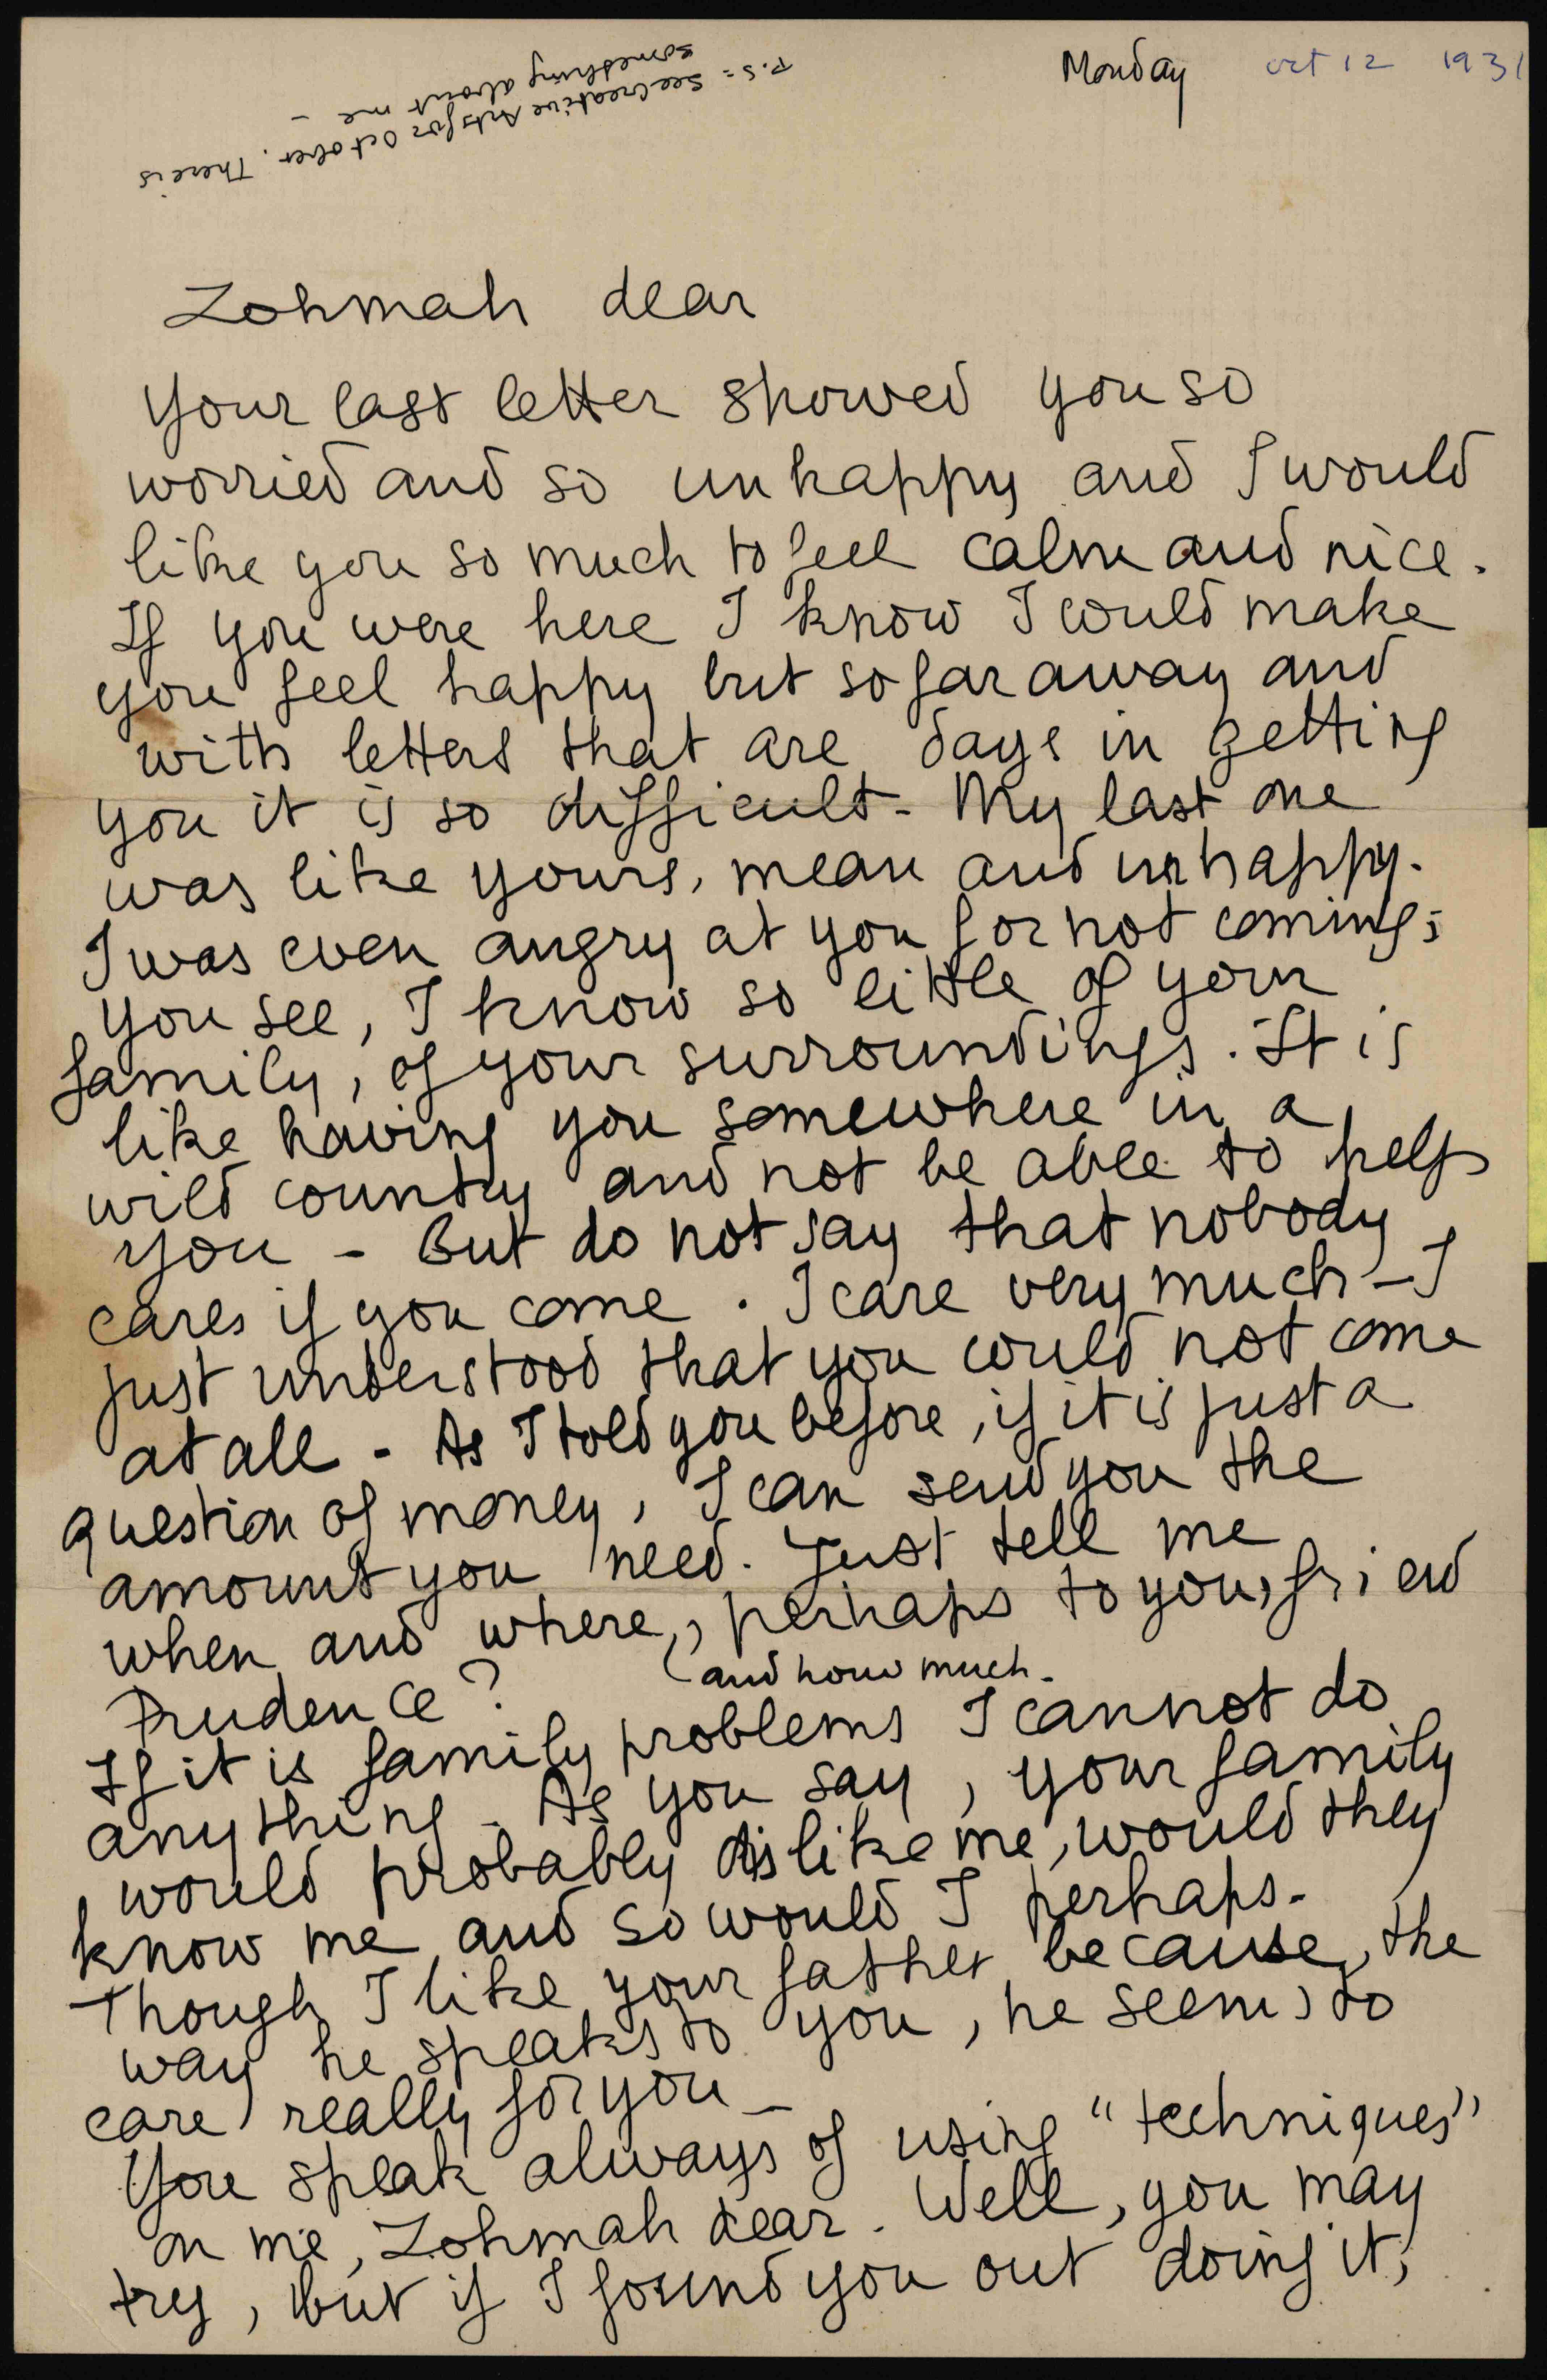 Monday Oct 12 1931
P.S = See Creative Arts for October. There is
something about me -
Zohmah dear
Your last letter showed you so
worried and so unhappy and I would
like you so much to feel calm and nice.
If you were here I know I could make
you feel happy but so far away and
with letters that are days in getting
you it is so difficult - My last one
was like yours, mean and unhappy.
I was even angry at you for not coming;
you see, I know so little of your
family, of your surroundings. It is
like having you somewhere in a
wild country and not be able to help
you - But do not say that nobody
cares if you come. I care very much - I
just understood that you could not come
at all - As I told you before, if it is just a
question of money, I can send you the
amount you need. Just tell me
when and where, perhaps to your friend
and how much.
Prudence?
If it is family problems I cannot do
anything - As you say, your family
would probably dislike me, would they
know me and so would I perhaps -
Though I like your father because, the
way he speaks to you, he seems to
care really for you -
You speak always of using "techniques"
on me, Zohmah dear. Well, you may
try, but if I found you out doing it,